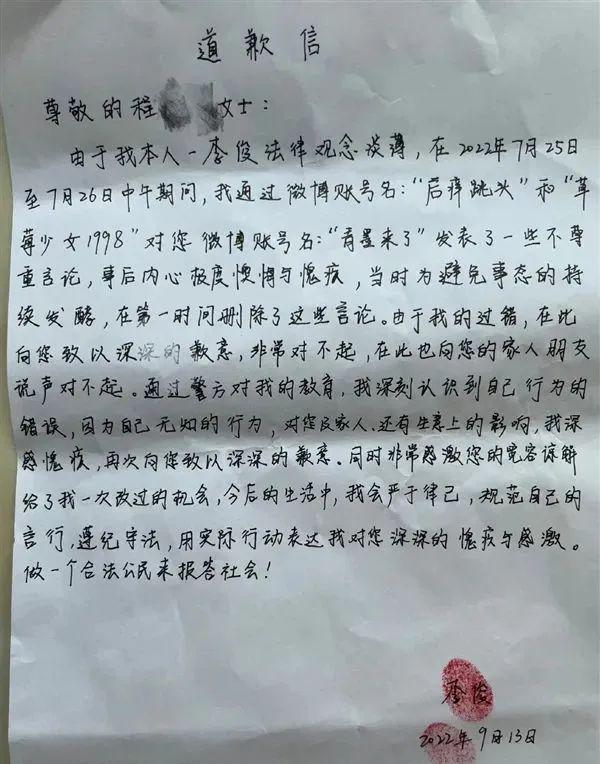 道歉信
尊敬的程女士：
由于我本人一李俊法律观念淡薄，在2022年7月25日
至7月26日中午期间，我通过微博账号名：“后痒跳头”和“草
莓少女1998”对您微博账号名：“青墨来了”发表了一些不尊
重言论，事后内心极度懊悔与愧疚，当时为避免事态的持
续发酵，在第一时间删除了这些言论。由于我的过错，在此
向您致以深深的歉意，非常对不起，在此也向您的家人朋友
说声对不起。通过警方对我的教育，我深刻认识到自己行为的
错误，因为自己无知的行为，对您及家人、还有生意上的影响，我深
感愧疚，再次向您致以深深的歉意。同时非常感激您的宽容谅解
给了我一次改过的机会，今后的生活中，我会严于律己，规范自己的
言行，遵纪守法，用实际行动表达我对您深深的愧疚与感激。
做一个合法公民来报答社会！
李俊
2022年9月13日